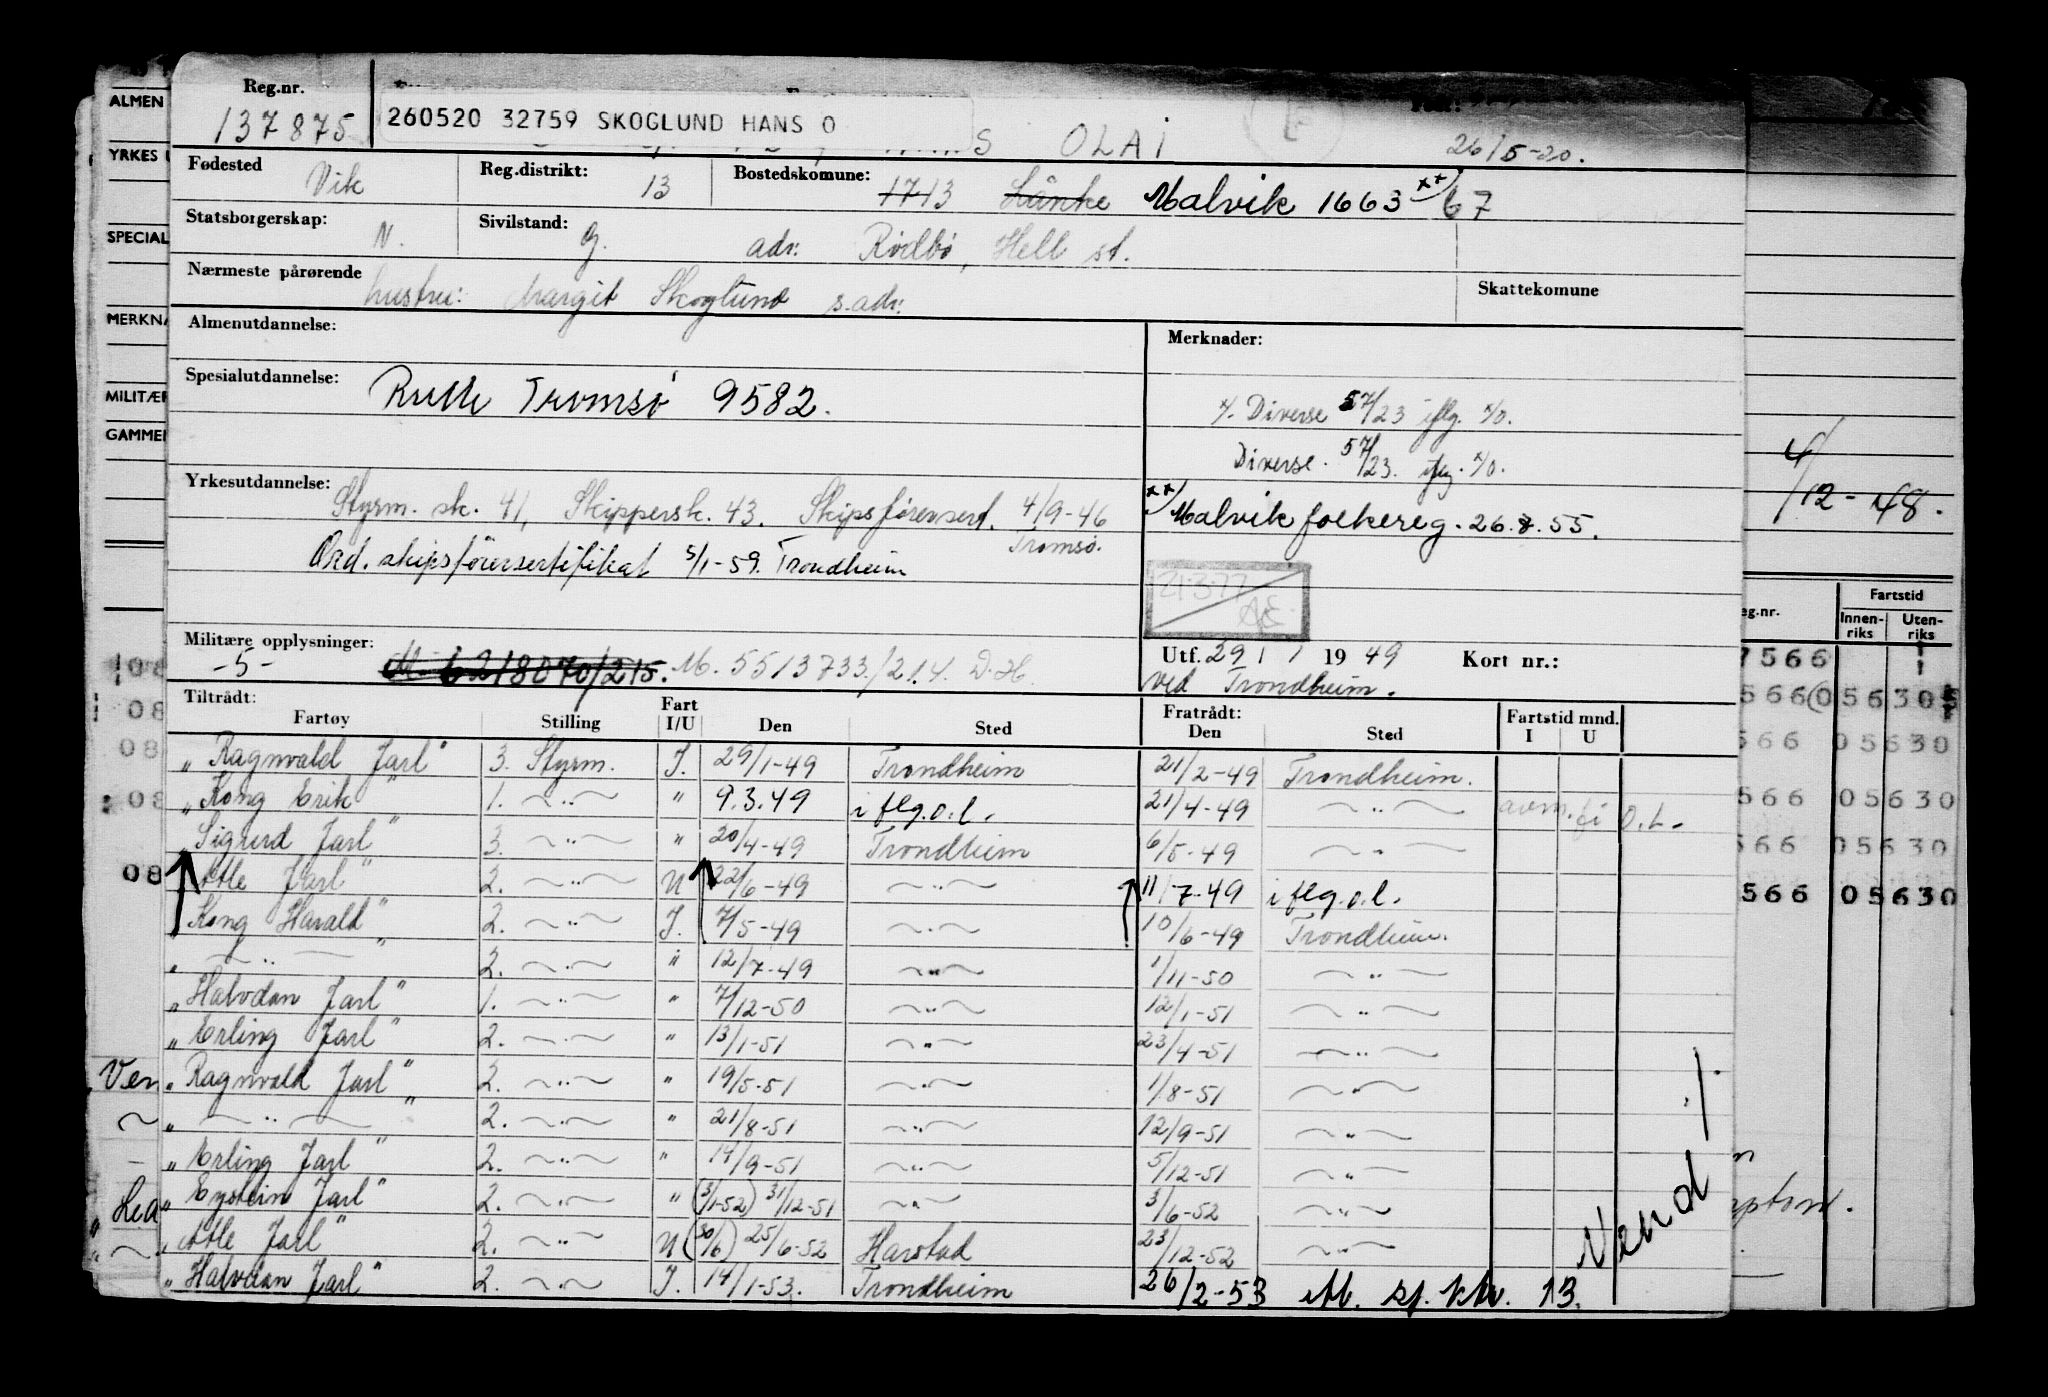 Reg.nr.
137875
260520 32759 SKOGLUND HANS O
OLAI
26/5-20.
Fødested Vik Reg.distrikt: 13 Bostedskomune: 1713 Lånke Malvik 1663 xx) 67
Statsborgerskap: N. Sivilstand: g. adr: Rödbö, Hell st.
Nærmeste pårørende hustru: Margit Skoglund s.adr. Skattekomune
Almenutdannelse: Merknader:
Spesialutdannelse: Rulle Tromsö 9582.
x/. Diverse 57/23 iflg. %.
Diverse. 57/23. iflg. %.
Yrkesutdannelse: Styrm. sk. 41, Skippersk. 43. Skipsförersert. 4/9-46 Tromsø.
xx) Malvik folkereg. 26.8.55.
Ord. skipsförersertifikat 5/1-59. Trondheim
21.3.77
Militære opplysninger: -5- M. 6218070/215. M. 5513733./214. D.H.
Utf. 29/1 1949 Kort nr.:
ved Trondheim.
Tiltrådt: Fartøy Stilling Fart I/U Den Sted Fratrådt: Den Sted Fartstid mnd. I U
"Ragnvald Jarl" 3. Styrm. I. 29/1-49 Trondheim 21/2-49 Trondheim.
"Kong Erik" 1. ~"~ " 9.3.49 i flg.o.l. 21/4-49 ~"~ avm. fi o.l.
"Sigurd Jarl" 3. ~"~ " 20/4-49 Trondheim 6/5-49 ~"~
"Atle Jarl" 2. ~"~ U 22/6-49 ~"~ 11/7-49 i flg.o.l.
"Kong Harald" 2. ~"~ I. 7/5-49 ~"~ 10/6-49 Trondheim.
" ~"~ " 2. ~"~ " 12/7-49 ~"~ 1/11-50 ~"~
"Halvdan Jarl" 1. ~"~ " 7/12-50 ~"~ 12/1-51 ~"~
"Erling Jarl" 2. ~"~ " 13/1-51 ~"~ 23/4-51 ~"~
"Ragnvald Jarl" 2. ~"~ " 19/5-51 ~"~ 1/8-51 ~"~
" ~"~ " 2. ~"~ " 21/8-51 ~"~ 12/9-51 ~"~
"Erling Jarl" 2. ~"~ " 14/9-51 ~"~ 5/12-51 ~"~
"Eystein Jarl" 2. ~"~ " (3/1-52) 31/12-51 ~"~ 3/6-52 ~"~
"Atle Jarl" 2. ~"~ U (30/6) 25/6-52 Harstad 23/12-52 ~"~
"Halvdan Jarl" 2. ~"~ I. 14/1-53. Trondheim 26/2-53 13.
Vend ./.
ALMEN
YRKES
SPECIAL
MERKNA
MILITÆR
GAMMEL
08
08
08
08
08
Ven
4/12-48.
eg.nr. Fartstid
Innen-riks Uten-riks
7566
566 0 5630
566 05630
566 05630
566 05630
566 05630